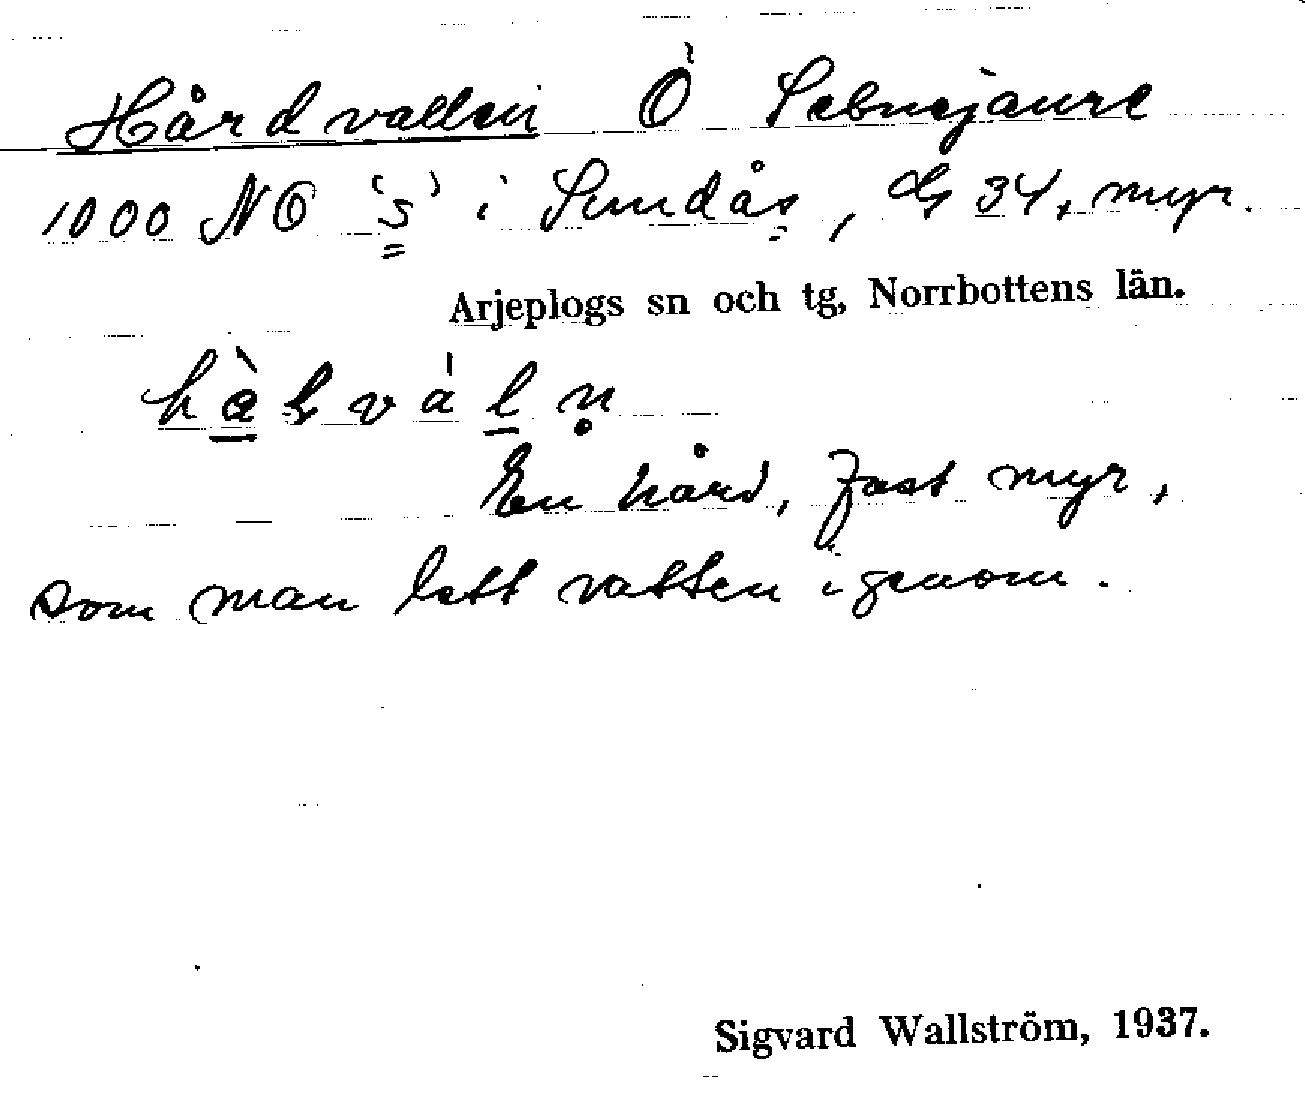 Hårdvallen Ö Sebnejaure
1000 NO "s" i Sundås, ds 34, myr.
Arjeplogs sn och tg, Norrbottens län.
En hård, fast myr,
som man lett vatten igenom.
Sigvard Wallström, 1937.